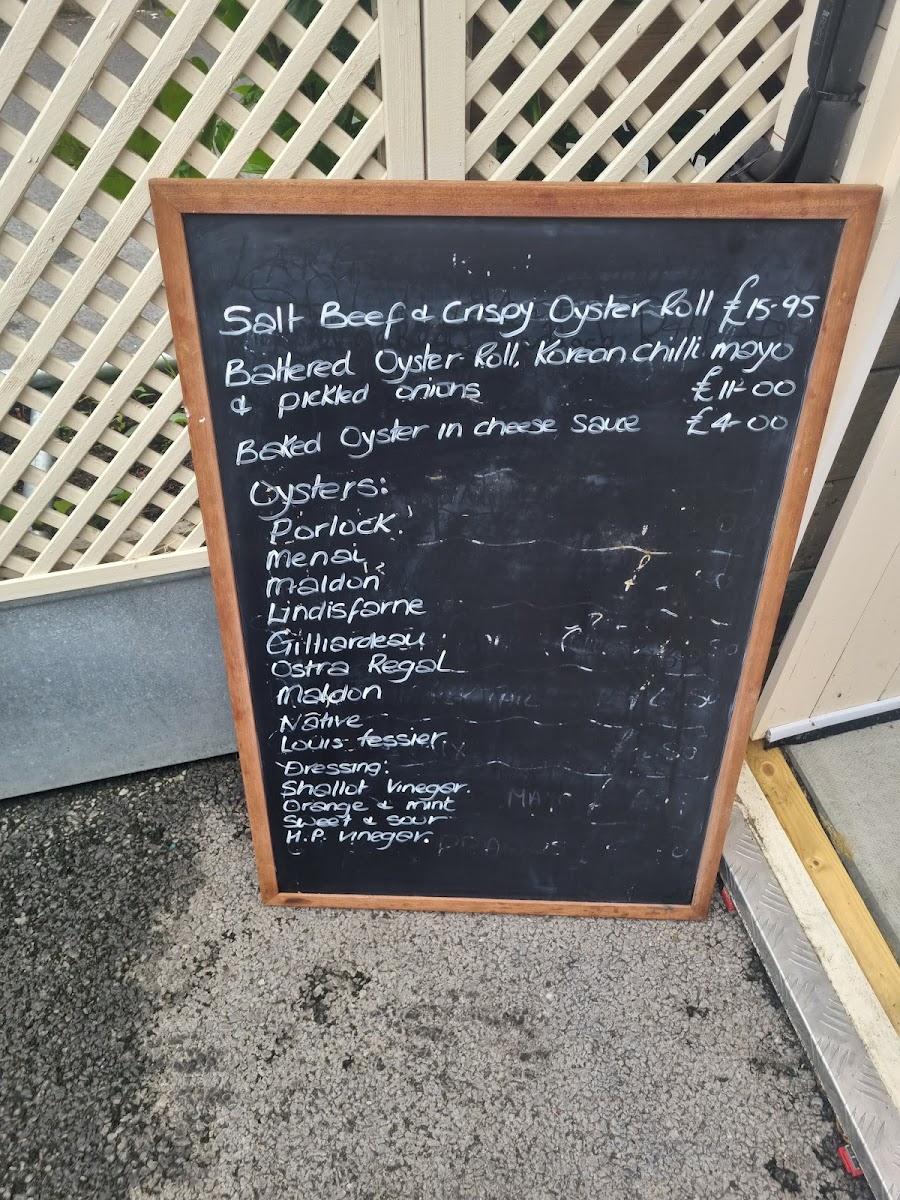 Salt Beef & Crispy Oyster Roll £15.95
Battered Oyster Roll, Korean chilli mayo
& pickled onions £11-00
Baked Oyster in cheese sauce £4-00
Oysters:
Porlock.
Menai
Maldon
Lindisfarne
Gilliardeau
Ostra Regal
Maldon
Native
Louis fessier
Dressing:
Shallot vinegar.
Orange & mint
Sweet & sour
H.P. vinegar.